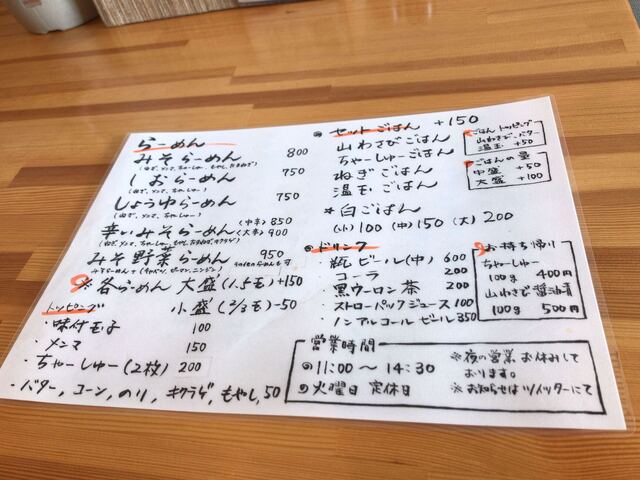 らーめん
みそらーめん 800
(ねぎ、メンマ、ちゃーしゅー、もやし、たまねぎ)
しおらーめん 750
(ねぎ、メンマ、ちゃーしゅー)
しょうゆらーめん 750
(ねぎ、メンマ、ちゃーしゅー)
辛いみそらーめん (中辛) 850
(大辛) 900
(ねぎ、メンマ、ちゃーしゅー、もやし、たまねぎ、キクラゲ)
みそ野菜らーめん 950
みそらーめん+(キャベツ、ピーマン、ニンジン)
※各らーめん 大盛(1.5玉)+150
小盛(2/3玉)-50
トッピング
・味付玉子 100
・メンマ 150
・ちゃーしゅー(2枚) 200
・バター, コーン, のり, キクラゲ, もやし, 50
セットごはん +150
山わさびごはん
ちゃーしゅーごはん
ねぎごはん
温玉ごはん
*白ごはん
(小)100 (中)150 (大)200
ごはんトッピング
山わさび、バター
温玉 +50
ごはんの量
中盛 +50
大盛 +100
ドリンク
・瓶ビール(中) 600
・コーラ 200
・黒ウーロン茶 200
・ストローパックジュース 100
・ノンアルコールビール 350
お持ち帰り
ちゃーしゅー
100g 400円
山わさび醤油漬
100g 500円
営業時間
11:00〜14:30
火曜日 定休日
※夜の営業お休みして
おります。
※お知らせはツイッターにて